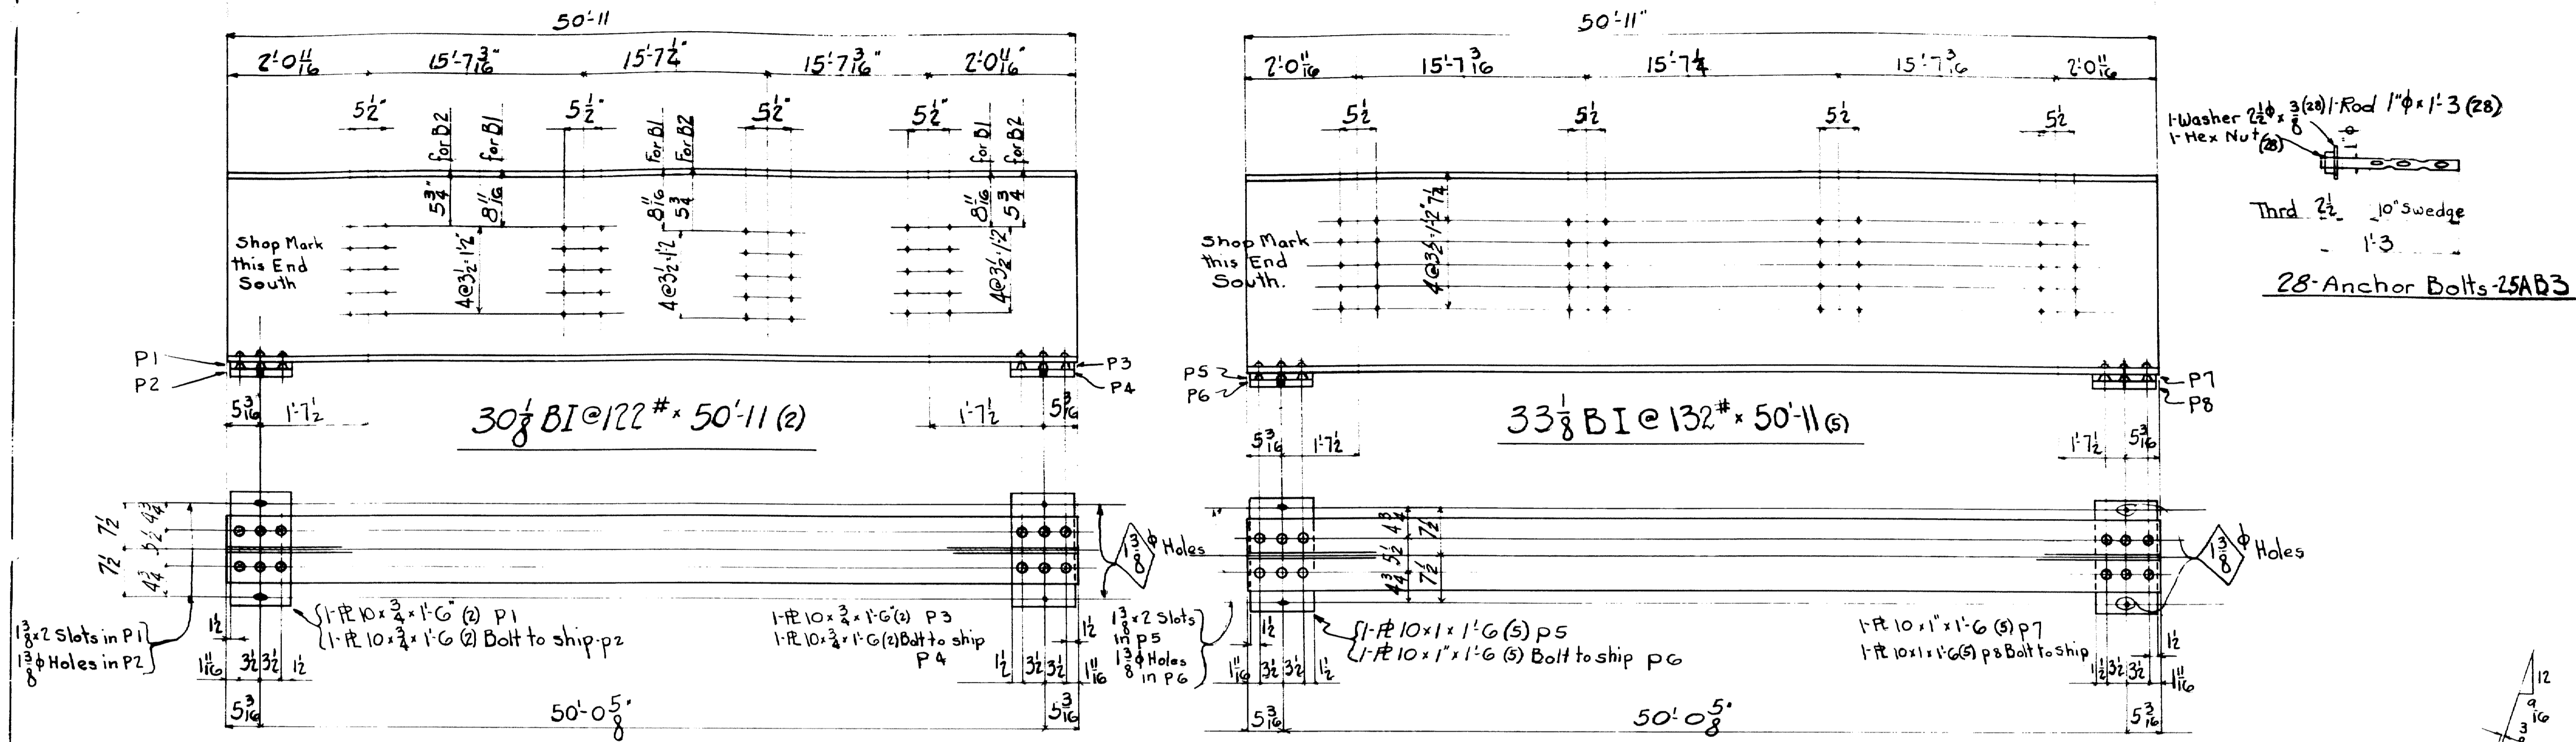 50'-11
2'-0 11/16
15'-7 3/16"
15'-7 1/4"
15'-7 3/16"
2'-0 11/16"
5 1/2"
5 1/2"
5 1/2"
5 1/2"
for B2
for B1
For B1
For B2
for B1
for B2
5 3/4"
8 11/16
8 11/16
5 3/4
8 11/16
5 3/4
Shop Mark
this End
South
4@3 1/2=1'-2"
4@3 1/2=1'-2
4@3 1/2=1'-2
P1
P2
P3
P4
5 3/16
1'-7 1/2
30 1/8 BI@122# x 50'-11 (2)
1'-7 1/2
5 3/16
7 1/2
4 3/4
5 1/2
7 1/2
4 3/4
1 3/8 φ Holes
1 3/8 x 2 Slots in P1
1 3/8 φ Holes in P2
1-PL 10 x 3/4 x 1'-6" (2) P1
1-PL 10 x 3/4 x 1'-6 (2) Bolt to ship-p2
1-PL 10 x 3/4 x 1'-6"(2) P3
1-PL 10 x 3/4 x 1'-6"(2) Bolt to ship
P4
1 1/2
1 11/16
3 1/2
3 1/2
1 1/2
1 1/2
1 1/2
3 1/2
3 1/2
1 11/16
5 3/16
50'-0 5/8"
5 3/16
50'-11"
2'-0 11/16
15'-7 3/16
15'-7 1/4
15'-7 3/16
2'-0 11/16
5 1/2
5 1/2
5 1/2
5 1/2
7 1/4
4@3 1/2=1'-2"
Shop Mark
this End
South.
P5
P6
P7
P8
5 3/16
1'-7 1/2
33 1/8 BI@132# x 50'-11 (5)
1'-7 1/2
5 3/16
4 3/4
5 1/2
4 3/4
7 1/2
7 1/2
1 3/8 φ Holes
1 3/8 x 2 Slots
in P5
1 3/8 φ Holes
in P6
1-PL 10 x 1 x 1'-6 (5) p5
1-PL 10 x 1" x 1'-6 (5) Bolt to ship p6
1-PL 10 x 1" x 1'-6 (5) p7
1-PL 10 x 1 x 1'-6(5) p8 Bolt to ship
1 1/2
1 11/16
3 1/2
3 1/2
1 1/2
1 1/2
1 1/2
3 1/2
3 1/2
1 11/16
5 3/16
50'-0 5/8"
5 3/16
1-Washer 2 1/2 φ x 3/8 (28) 1-Rod 1"φ x 1'-3 (28)
1-Hex Nut (28)
Thrd 2 1/2 10" Swedge
1'-3
28-Anchor Bolts-25AB3
12
9/16